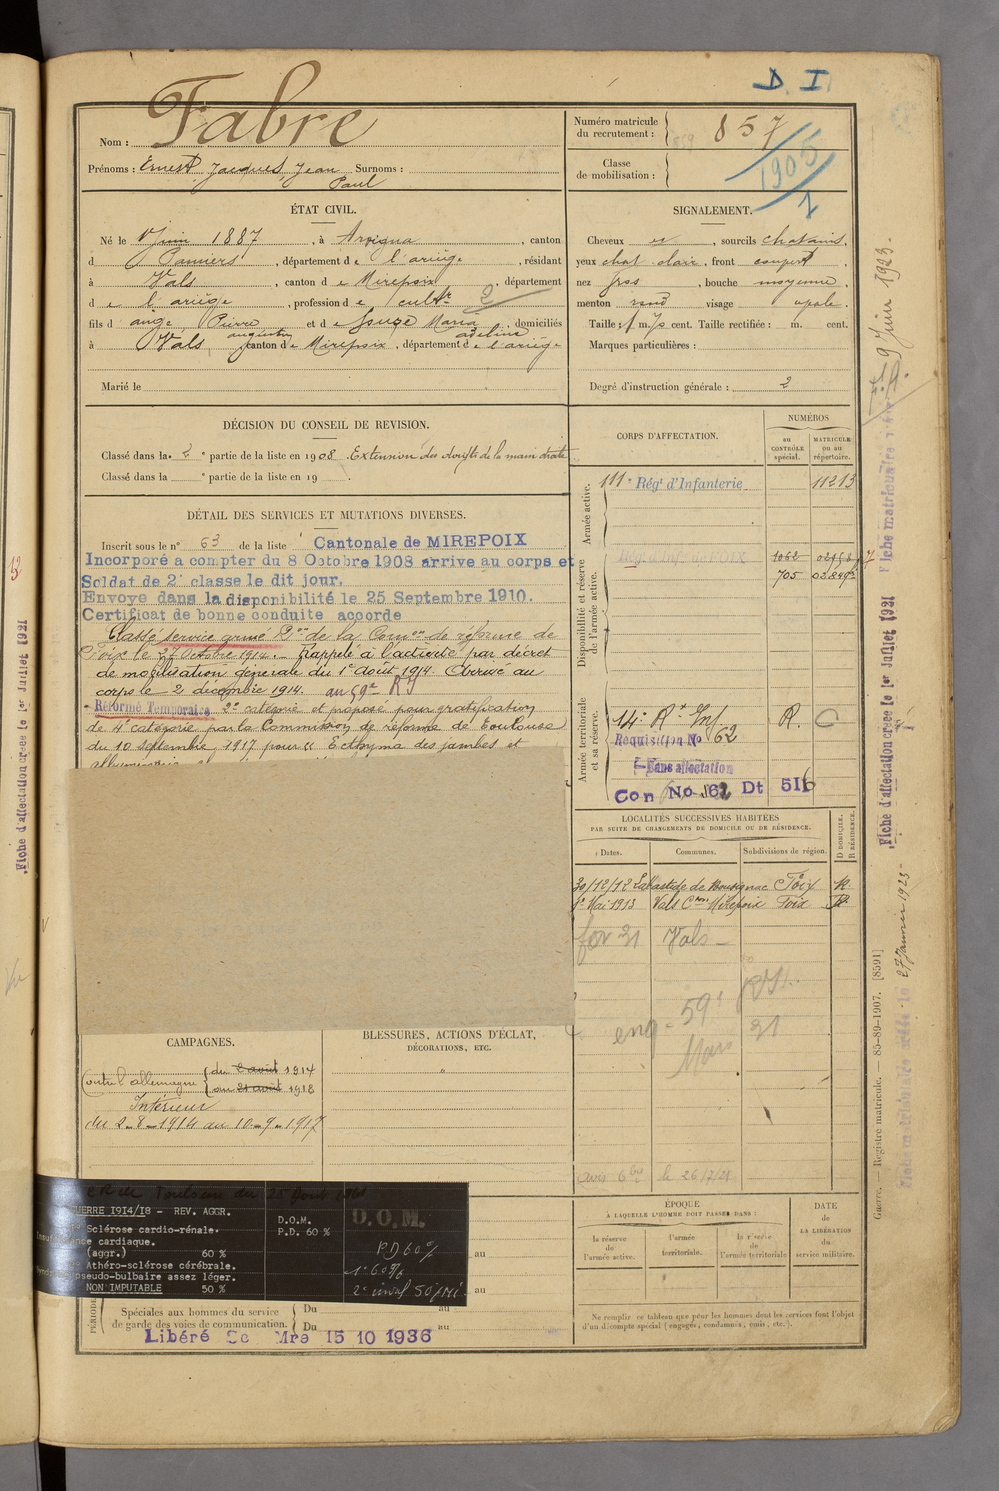 D. I.
Nom : Fabre
Prénoms : Ernest Jacques, Jean Surnoms :
Paul
Numéro matricule
du recrutement : 857
Classe
de mobilisation :
1905
ÉTAT CIVIL.
Né le 1er Juin 1887, à Arvigna, canton
d Pamiers, département de l'ariège, résidant
à Vals, canton de Mirepoix, département
de l'ariège, profession de cultr 2
fils d'ange, Pierre et de Maria, domiciliés
adeline
à Vals, canton de Mirepoix, département de l'ariège
Marié le
SIGNALEMENT.
Cheveux, sourcils chatains,
yeux chat. clair, front
nez gros, bouche moyenne,
menton rond visage ovale.
Taille : 1 m. 70 cent. Taille rectifiée : m. cent.
Marques particulières :
Degré d'instruction générale : 2
DÉCISION DU CONSEIL DE REVISION.
Classé dans la 2e partie de la liste en 1908. Extension des doigts de la main droite
Classé dans la e partie de la liste en 19
DÉTAIL DES SERVICES ET MUTATIONS DIVERSES.
Inscrit sous le n° 63 de la liste Cantonale de MIREPOIX
Incorporé a compter du 8 Octobre 1908 arrive au corps et
Soldat de 2e classe le dit jour.
Envoye dans la disponibilité le 25 Septembre 1910.
Certificat de bonne conduite accorde
Classé service armé Don de la Comon de réforme de
Foix le 27 octobre 1914. Rappelé à l'activité par décret
de mobilisation générale du 1er Août 1914. Arrivé au
corps le 2 décembre 1914. au 59e RI
Réformé Temporaire 2e catégorie et proposé pour gratification
de 4e catégorie par la Commission de réforme de Toulouse
du 10 septembre 1917 pour "Ecthyma des jambes et
CORPS D'AFFECTATION.
NUMÉROS
au
CONTRÔLE
spécial.
MATRICULE
ou au
répertoire.
Armée active.
111e Régt d'Infanterie 11213
Disponibilité et réserve
de l'armée active.
Régt d'Inf. de FOIX 1062
705
Armée territoriale
et sa réserve.
14e Rt Inf R. C
Requisition No 62
Sans affectation
Con No 62 Dt 516
LOCALITÉS SUCCESSIVES HABITÉES
PAR SUITE DE CHANGEMENTS DE DOMICILE OU DE RÉSIDENCE.
Dates. Communes. Subdivisions de région. D DOMICILE. R RÉSIDENCE.
30/12/12 Labastide de Bousignac Foix R.
1er Mai 1913 Vals Con Mirepoix Foix R.
31 Vals
59e
Mars 31
le 26/7/21
CAMPAGNES.
Contre l'allemagne du 2 août 1914
au 1918
Intérieur
du 2-8-1914 au 10-9-1917
BLESSURES, ACTIONS D'ÉCLAT,
DÉCORATIONS, ETC.
"
Toulouse du 25 Aout
GUERRE 1914/18 - REV. AGGR.
Sclérose cardio-rénale.
Insuffisance cardiaque.
(aggr.) 60 %
Athéro-sclérose cérébrale.
Syndrome pseudo-bulbaire assez léger.
NON IMPUTABLE 50 %
D.O.M.
P.D. 60 %
D.O.M.
PD 60%
1° 60%
2° inval 50%
au
au
Spéciales aux hommes du service
de garde des voies de communication.
Du au
Du au
Libéré Se Mre 15 10 1936
ÉPOQUE
À LAQUELLE L'HOMME DOIT PASSER DANS :
la réserve
de
l'armée active.
l'armée
territoriale.
la réserve
de
l'armée territoriale
DATE
de
LA LIBÉRATION
du
service militaire.
Ne remplir ce tableau que pour les hommes dont les services font l'objet
d'un décompte spécial (engagés, condamnés, omis, etc.).
Guerre. — Registre matricule. — 85-89-1907. [8591]
Fiche matriculaire créée le 27 Janvier 1923
Fiche d'affectation créée le 1er Juillet 1931
9 Juin 1923
Fiche d'affectation créée le 1er Juillet 1931